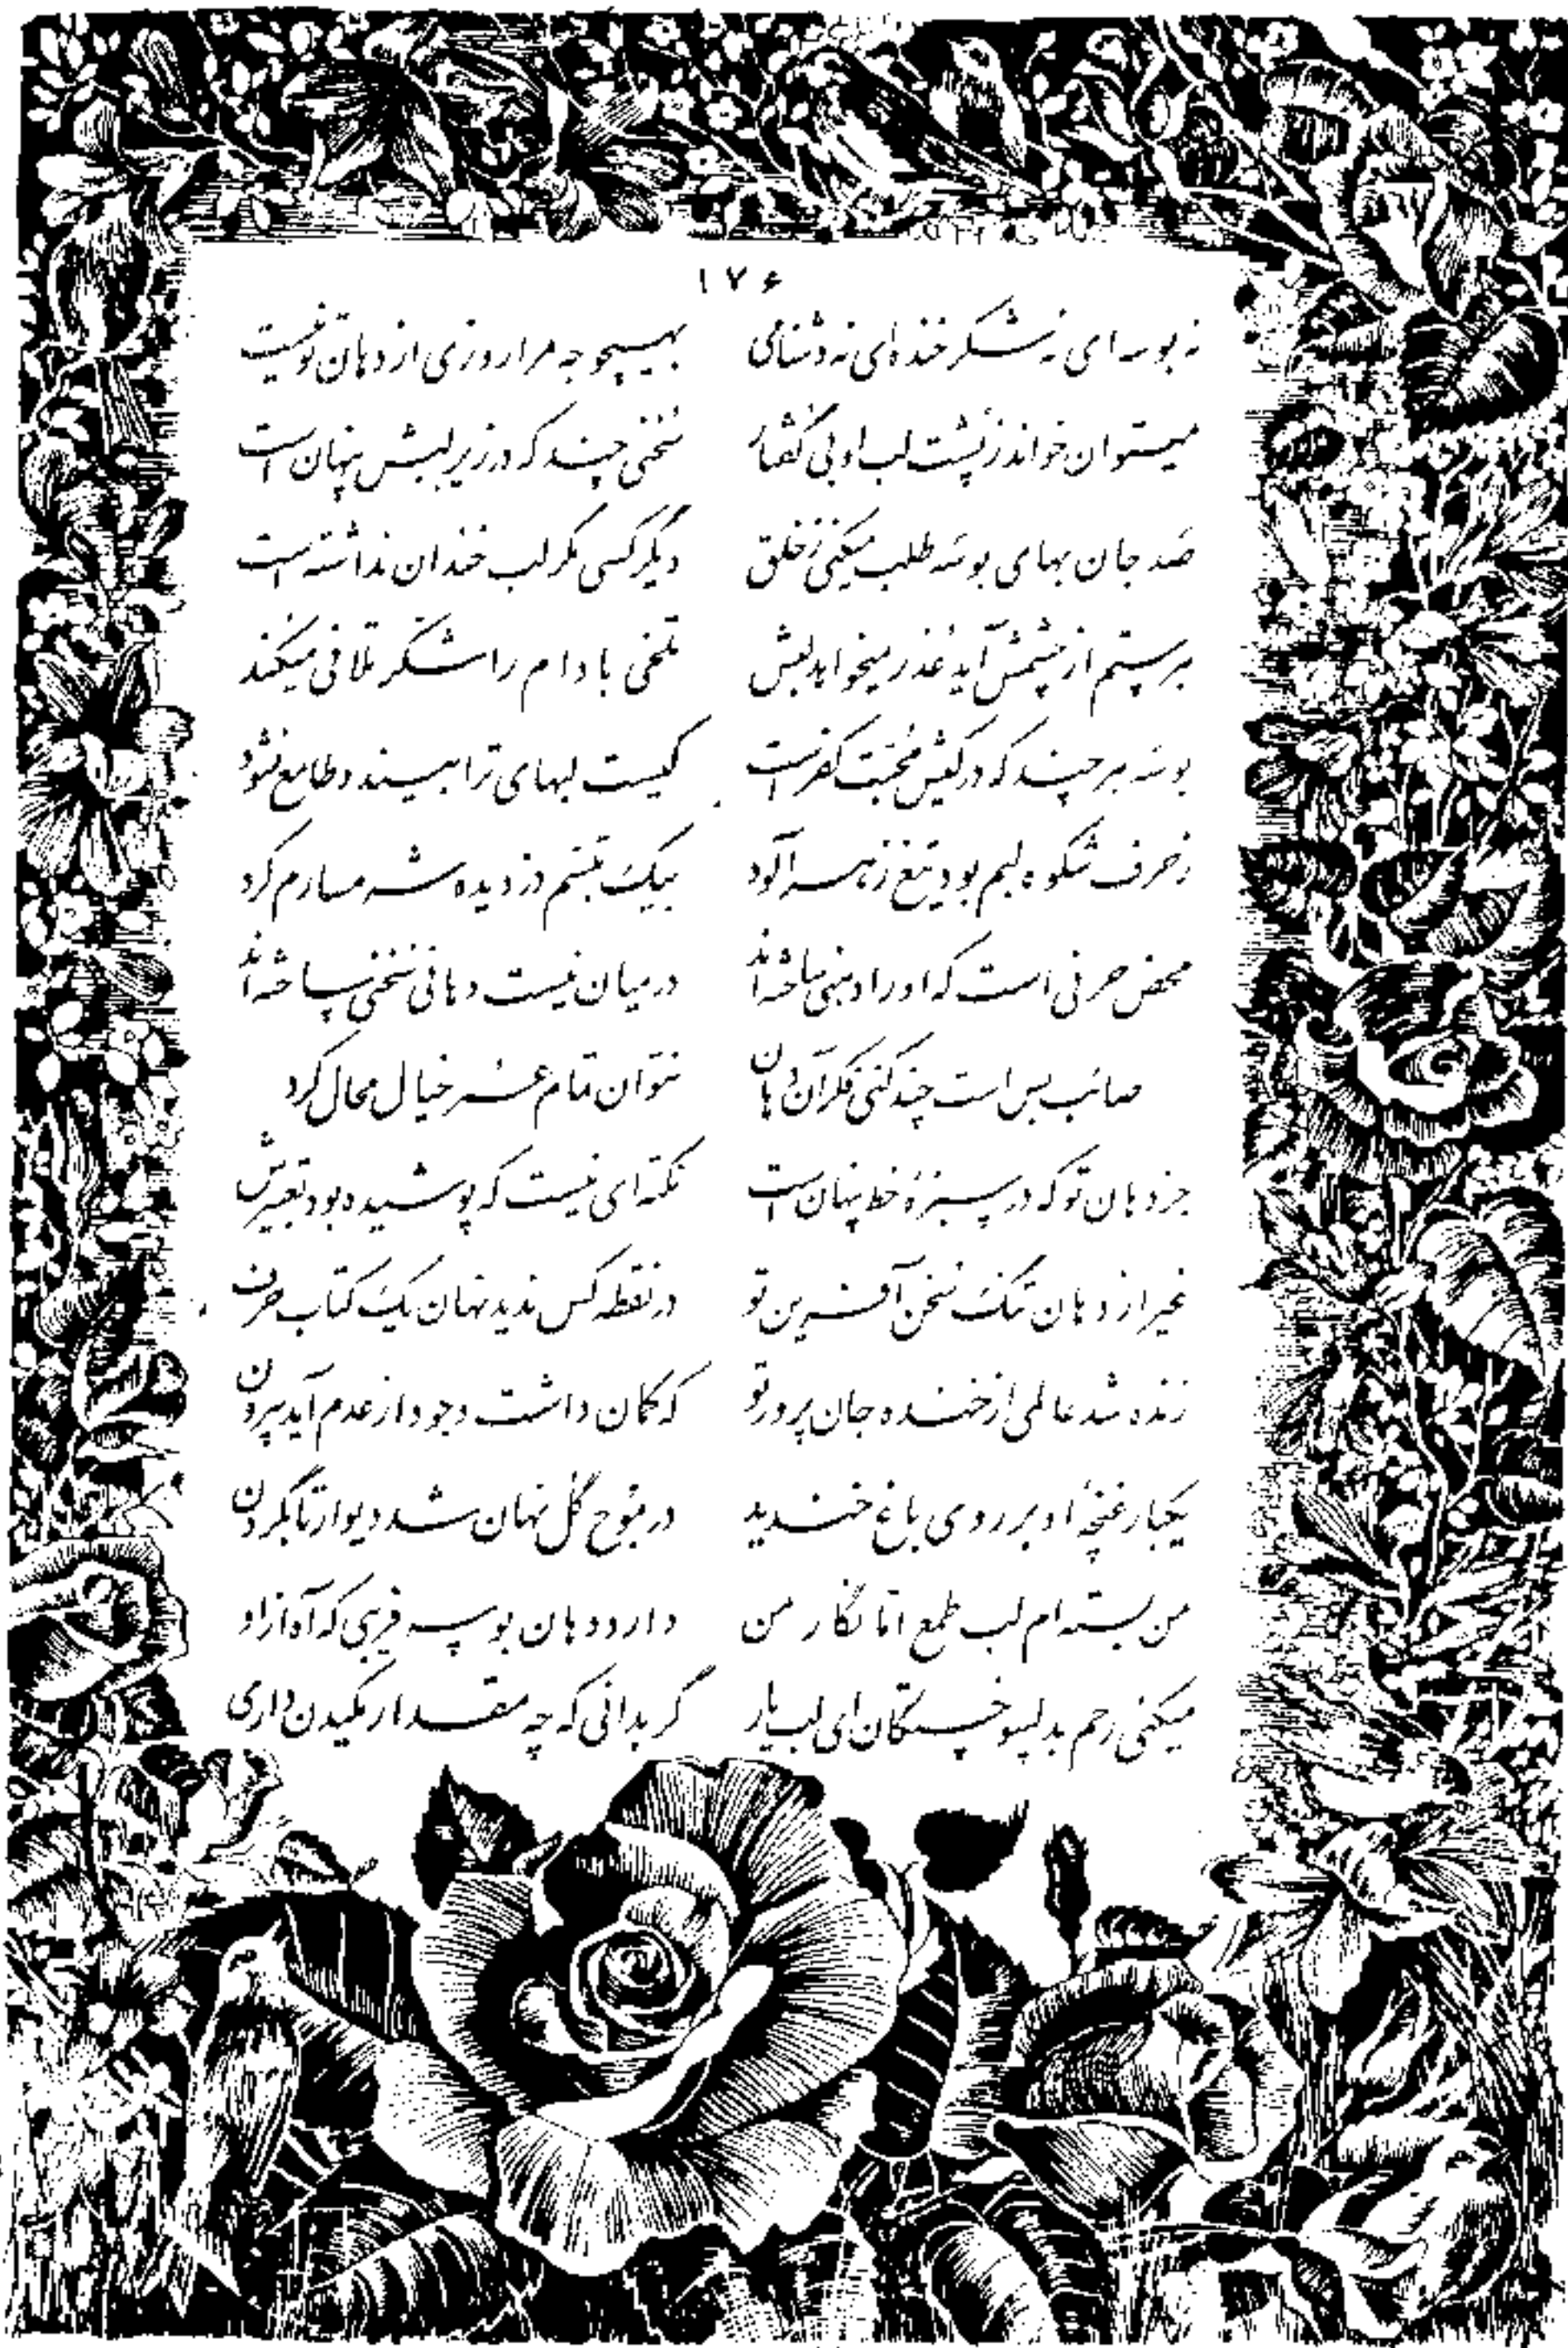 ۱۷۶
نه بوسه ای نه شکر خنده ای نه دشنامی بهیچوجه مرا روزی از دهان تو نیست
میتوان خواند ز پشت لب او بی گفتار سخنی چند که در زیر لبش پنهان است
صد جان بهای بوسه طلب میکنی ز خلق دیگر کسی مگر لب خندان نداشته است
هر ستم از چشمش آید عذر میخواهد لبش تلخی بادام را شکر تلافی میکند
بوسه هر چند که در کیش محبت کفر است کیست لبهای ترا بیند و طامع نشود
ز حرف شکوه لبم بود تیغ زهر آلود بیک تبسم دزدیده شرمسارم کرد
محض حرفی است که او را دهنی ساخته اند در میان نیست دهانی سخنی ساخته اند
صائب بس است چند کنی فکر آن دهان نتوان تمام عمر خیال محال کرد
جز دهان تو که در سبزهٔ خط پنهان است نکته ای نیست که پوشیده بود تعبیرش
غیر از دهان تنگ سخن آفرین تو در نقطه کس ندید نهان یک کتاب حرف
زنده شد عالمی از خنده جان پرور تو که گمان داشت وجود از عدم آید بیرون
یکبار غنچهٔ او بر روی باغ خندید در موج گل نهان شد دیوار تا بگردن
من بسته ام لب طمع اما نگار من دارد دهان بوسه فریبی که آه از او
میکنی رحم بدلسوختگان ای لب یار گر بدانی که چه مقدار مکیدن داری